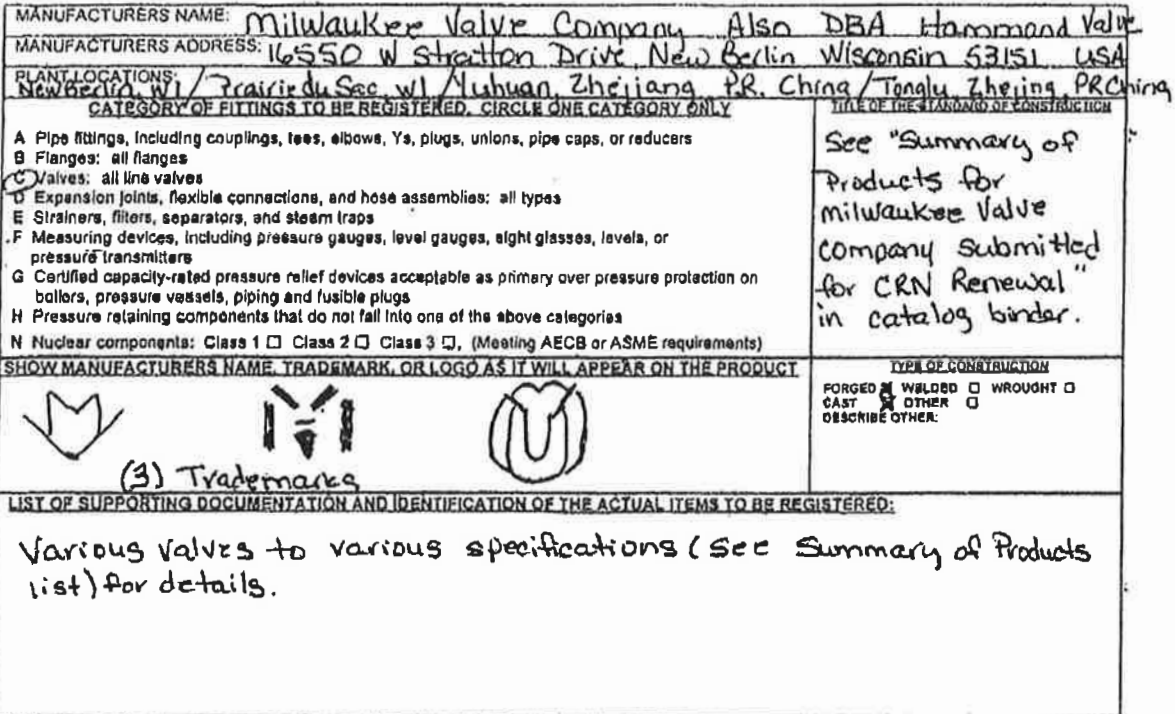 MANUFACTURERS NAME: Milwaukee Valve Company Also DBA Hammond Valve
MANUFACTURERS ADDRESS: 16550 W Stratton Drive New Berlin Wisconsin 53151 USA
PLANT LOCATIONS: New Berlin, WI / Prairie du Sac, WI / Yuhuan, Zhejiang P.R. China / Tonglu, Zhejing, PR China
CATEGORY OF FITTINGS TO BE REGISTERED. CIRCLE ONE CATEGORY ONLY
A Pipe fittings, including couplings, tees, elbows, Ys, plugs, unions, pipe caps, or reducers
B Flanges: all flanges
C Valves: all line valves
D Expansion joints, flexible connections, and hose assemblies: all types
E Strainers, filters, separators, and steam traps
F Measuring devices, including pressure gauges, level gauges, sight glasses, levels, or
pressure transmitters
G Certified capacity-rated pressure relief devices acceptable as primary over pressure protection on
boilers, pressure vessels, piping and fusible plugs
H Pressure retaining components that do not fall into one of the above categories
N Nuclear components: Class 1 ☐ Class 2 ☐ Class 3 ☐, (Meeting AECB or ASME requirements)
TITLE OF THE STANDARD OF CONSTRUCTION
See "Summary of
Products for
Milwaukee Valve
Company submitted
for CRN Renewal"
in catalog binder.
SHOW MANUFACTURERS NAME, TRADEMARK, OR LOGO AS IT WILL APPEAR ON THE PRODUCT
(3) Trademarks
TYPE OF CONSTRUCTION
FORGED ☒ WELDED ☐ WROUGHT ☐
CAST ☒ OTHER ☐
DESCRIBE OTHER:
LIST OF SUPPORTING DOCUMENTATION AND IDENTIFICATION OF THE ACTUAL ITEMS TO BE REGISTERED:
Various valves to various specifications (See Summary of Products
list) for details.